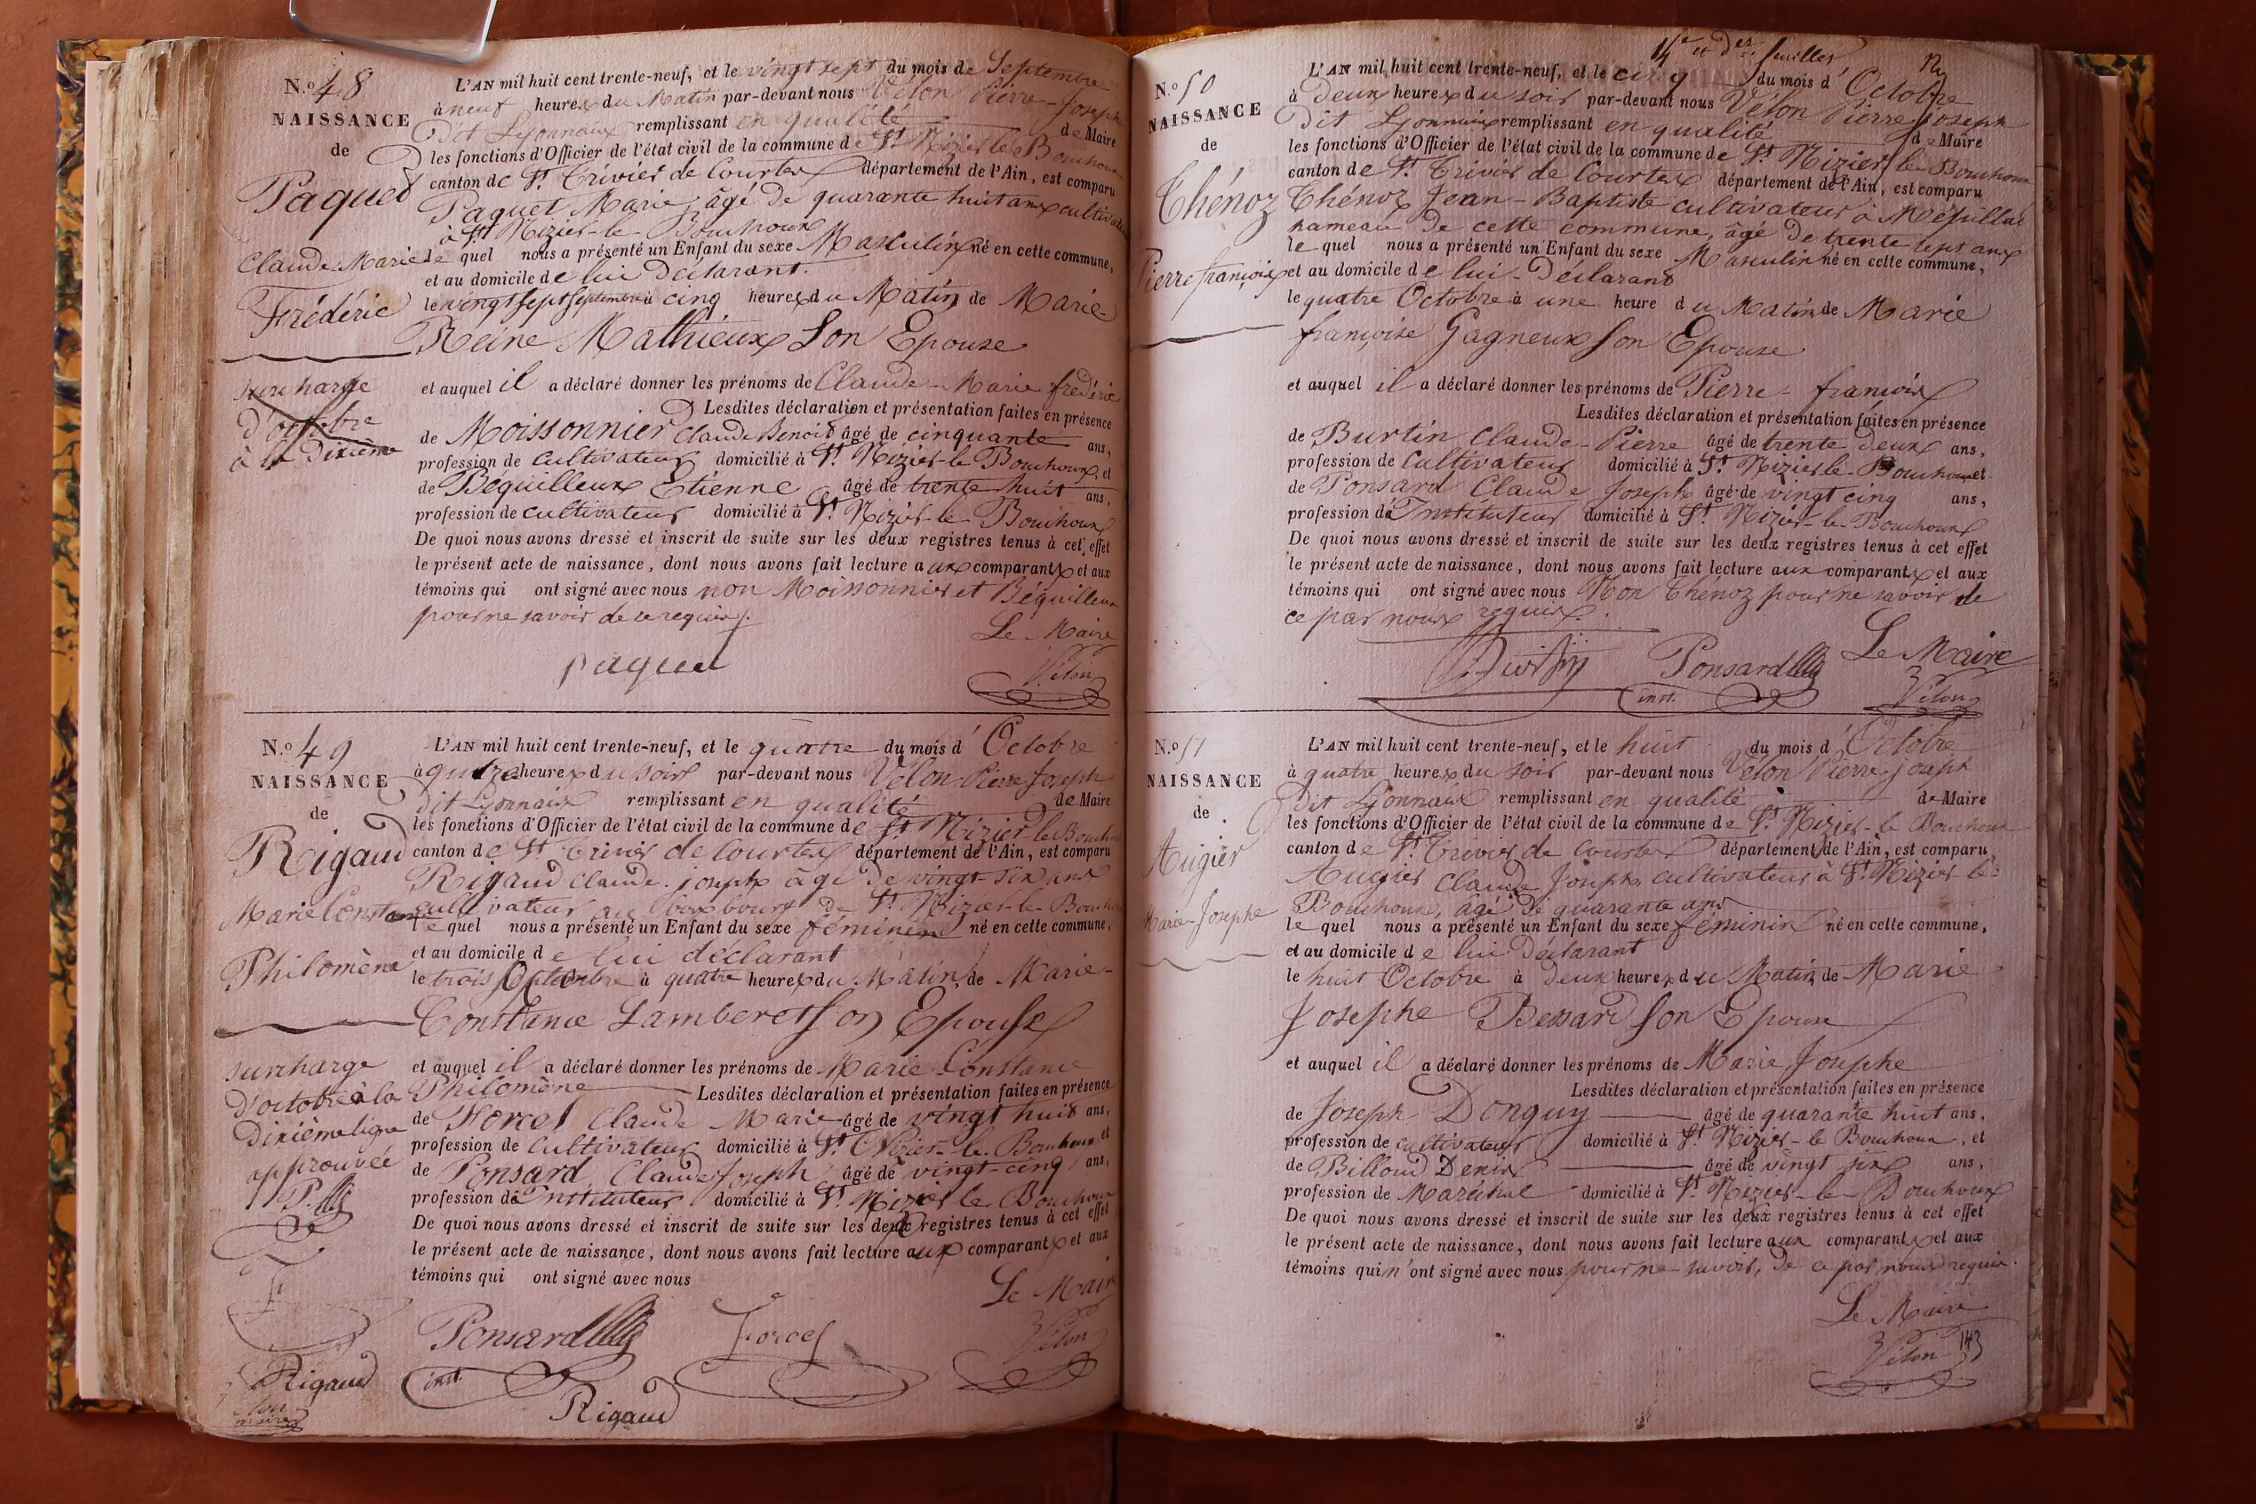 N.o 48
NAISSANCE
de
Paquet
Claude Marie
Frédéric
surcharge
d'octobre
à la dixième
L'AN mil huit cent trente-neuf, et le vingt sept du mois de Septembre
à neuf heures du Matin par-devant nous Vélon Pierre-Joseph
Dit Lyonnaix remplissant en qualité de Maire
les fonctions d'Officier de l'état civil de la commune de St Nizier le Bouchoux
canton de St. Trivier de Courtes département de l'Ain, est comparu
Paquet Marie, âgé de quarante huit ans cultivateur
à St Nizier-le-Bouchoux
le quel nous a présenté un Enfant du sexe Masculin né en cette commune,
et au domicile de lui Déclarant.
le vingt sept septembre à cinq heures du Matin de Marie-
Reine Mathieux Son Epouse
et auquel il a déclaré donner les prénoms de Claude-Marie frédéric
Lesdites déclaration et présentation faites en présence
de Moissonnier Claude Benoit âgé de cinquante ans,
profession de cultivateur domicilié à St Nizier-le-Bouchoux, et
de Béquilleux Etienne âgé de trente huit ans,
profession de cultivateur domicilié à St Nizier-le-Bouchoux
De quoi nous avons dressé et inscrit de suite sur les deux registres tenus à cet effet
le présent acte de naissance, dont nous avons fait lecture aux comparants et aux
témoins qui ont signé avec nous non Moissonnier et Béquilleux
pour ne savoir de ce requis.
Le Maire
paquet
Vélon
N.o 49
NAISSANCE
de
Rigaud
Marie Constance
Philomène
surcharge
d'octobre à la
dixième ligne
approuvée
Rigaud
L'AN mil huit cent trente-neuf, et le quatre du mois d'Octobre
à heures du soir par-devant nous Vélon Pierre Joseph
dit Lyonnaix remplissant en qualité de Maire
les fonctions d'Officier de l'état civil de la commune de St Nizier le Bouchoux
canton de St Trivier de Courtes département de l'Ain, est comparu
Rigaud Claude-joseph âgé de vingt six ans
cultivateur au bourg de St Nizier-le-Bouchoux
le quel nous a présenté un Enfant du sexe féminin né en cette commune,
et au domicile de lui déclarant
le trois Octobre à quatre heures du Matin, de Marie-
Constance Lamberet son Epouse
et auquel il a déclaré donner les prénoms de Marie Constance
Philomène Lesdites déclaration et présentation faites en présence
de Forcet Claude Marie âgé de vingt huit ans,
profession de cultivateur domicilié à St Nizier-le-Bouchoux et
de Ponsard Claude Joseph âgé de vingt-cinq ans,
profession de Instituteur domicilié à St Nizier le Bouchoux
De quoi nous avons dressé et inscrit de suite sur les deux registres tenus à cet effet
le présent acte de naissance, dont nous avons fait lecture aux comparants et aux
témoins qui ont signé avec nous
Le Maire
Ponsard
Forcet
Vélon
inst.
Rigaud
14e et der. feuillet
N.o 50
NAISSANCE
de
Thénoz
Pierre françois
L'AN mil huit cent trente-neuf, et le cinq du mois d'Octobre
à Deux heures du soir par-devant nous Vélon Pierre Joseph
Dit Lyonnaix remplissant en qualité de Maire
les fonctions d'Officier de l'état civil de la commune de St Nizier le Bouchoux
canton de St. Trivier de Courtes département de l'Ain, est comparu
Thénoz Jean-Baptiste cultivateur à
hameau de cette commune, âgé de trente sept ans
le quel nous a présenté un Enfant du sexe Masculin né en cette commune,
et au domicile de lui-Déclarant
le quatre Octobre à une heure du Matin de Marie
françoise Gagneux son Epouse
et auquel il a déclaré donner les prénoms de Pierre-françois
Lesdites déclaration et présentation faites en présence
de Burtin Claude-Pierre âgé de trente deux ans,
profession de Cultivateur domicilié à St Nizier-le-Bouchoux et
de Ponsard Claude Joseph âgé de vingt cinq ans,
profession de Instituteur domicilié à St Nizier-le-Bouchoux
De quoi nous avons dressé et inscrit de suite sur les deux registres tenus à cet effet
le présent acte de naissance, dont nous avons fait lecture aux comparants et aux
témoins qui ont signé avec nous Non Thénoz pour ne savoir de
ce par nous requis.
Le Maire
Burtin
Ponsard
inst.
Vélon
N.o 51
NAISSANCE
de
Augier
Marie-Josephe
L'AN mil huit cent trente-neuf, et le huit du mois d'Octobre
à quatre heures du soir par-devant nous Vélon Pierre-Joseph
Dit Lyonnaix remplissant en qualité de Maire
les fonctions d'Officier de l'état civil de la commune de St Nizier-le Bouchoux
canton de St. Trivier de Courtes département de l'Ain, est comparu
Augier Claude Joseph cultivateur à St Nizier le-
Bouchoux, âgé de quarante ans
le quel nous a présenté un Enfant du sexe féminin né en cette commune,
et au domicile de lui Déclarant
le huit Octobre à deux heures du Matin de Marie
Josephe Bessard son Epouse
et auquel il a déclaré donner les prénoms de Marie Josephe
Lesdites déclaration et présentation faites en présence
de Joseph Donguy âgé de quarante huit ans,
profession de cultivateur domicilié à St Nizier-le Bouchoux, et
de Billoud Denis âgé de vingt six ans,
profession de Maréchal domicilié à St Nizier-le-Bouchoux
De quoi nous avons dressé et inscrit de suite sur les deux registres tenus à cet effet
le présent acte de naissance, dont nous avons fait lecture aux comparants et aux
témoins qui n'ont signé avec nous pour ne savoir, de ce par nous requis.
Le Maire
Vélon
143